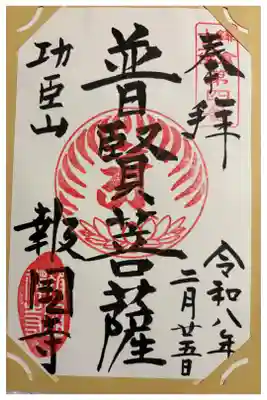 奉拝
令和八年
二月廿五日
普賢菩薩
功臣山
報國寺